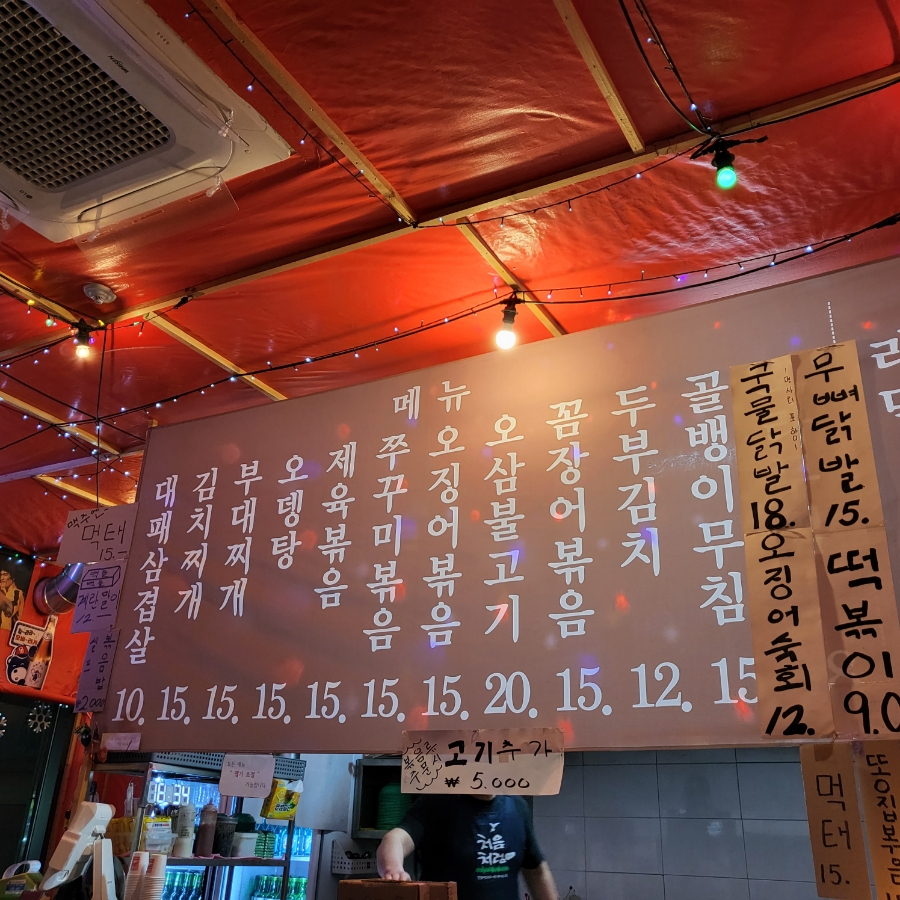 메뉴
대패삼겹살 10.
김치찌개 15.
부대찌개 15.
오뎅탕 15.
제육볶음 15.
쭈꾸미볶음 15.
오징어볶음 15.
오삼불고기 20.
꼼장어볶음 15.
두부김치 12.
골뱅이무침 15
국물닭발 18.
무뼈닭발 15.
오징어숙회 12.
떡볶이 9.0
먹태 15.-
계란말이 12.-
볶음밥
₩2,000
볶음류 주문시
고기추가
₩ 5.000
먹태 15.
똥집볶음
08:34
처음처럼